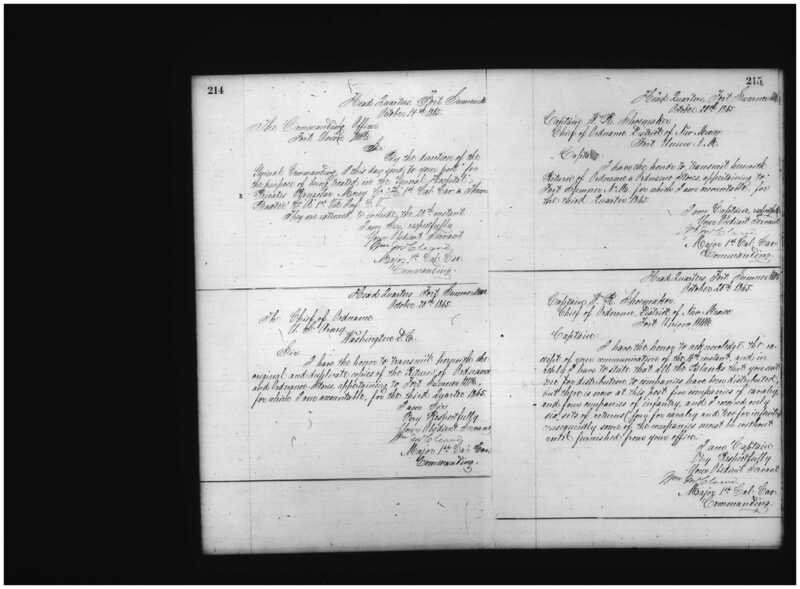 214
Head Quarters, Fort Sumner N.M.
October 14th 1865.
The Commanding Officer
Fort
Sir
By the direction of the
General Commanding, I this day send to your post for
the purpose of being treated in the General Hospital:
Privates 1st Cal. Cav. &
1st
They are rationed to include the instant
I am Sir, respectfully
Your Obedient Servant
Wm McCleave
Major 1st Cal. Cav.
Commanding.
Head Quarters Fort Sumner N.M.
October 20th 1865.
The Chief of Ordnance
U. S. Army
Washington D.C.
Sir
I have the honor to transmit herewith the
original and duplicate copies of the Return of Ordnance
and Ordnance Stores, appertaining to Fort Sumner N.M.
for which I am accountable, for the third Quarter 1865.
I am Sir
Very Respectfully
Your Obedient Servant
Wm McCleave
Major 1st Cal. Cav.
Commanding.
215
Head Quarters, Fort Sumner N.M.
October 20th 1865.
Captain W. R. Shoemaker
Chief of Ordnance District of New Mexico
Fort Union N.M.
Captain
I have the honor to transmit herewith
Return of Ordnance & Ordnance Stores, appertaining to
Fort Sumner N.M. for which I am accountable, for
the third Quarter 1865.
I am Captain, respectfully
Your Obedient Servant
Wm McCleave
Major 1st Cal. Cav.
Commanding.
Head Quarters, Fort Sumner N.M.
October 20th 1865.
Captain W. R. Shoemaker
Chief of Ordnance, District of New Mexico
Fort Union, N.M.
Captain
I have the honor to acknowledge the re-
ceipt of your communication of the instant, and in
reply I have to state that all the blanks that you sent
me for distribution to companies have been distributed,
but there is now at this post five companies of cavalry,
and four companies of infantry, and I received only
six sets of returns, four for cavalry and two for infantry
consequently some of the companies must be without
until furnished from your office.
I am Captain
Very Respectfully
Your Obedient Servant
Wm McCleave
Major 1st Cal. Cav.
Commanding.